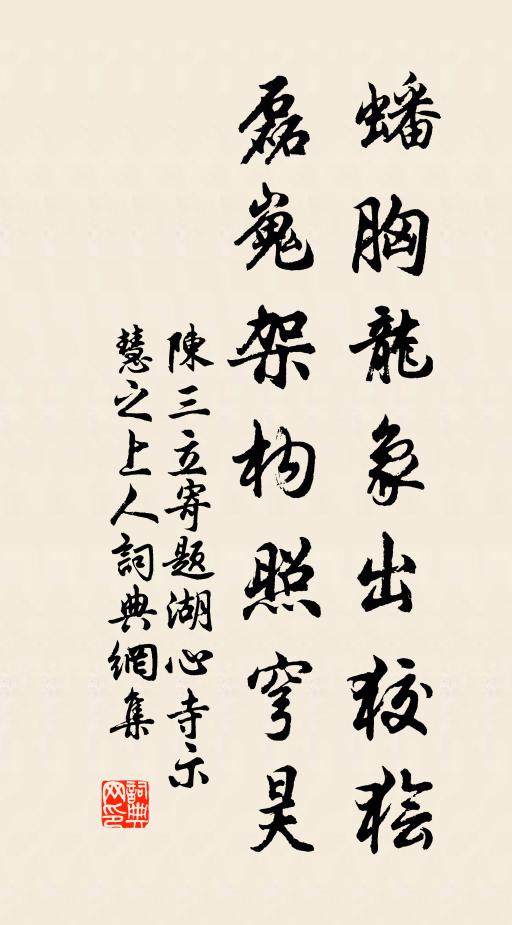 蟠胸龍象出狡獪
磊嵬架构照穹昊
陳三立寄題湖心寺示
慧之上人詞典網集
詞典网印